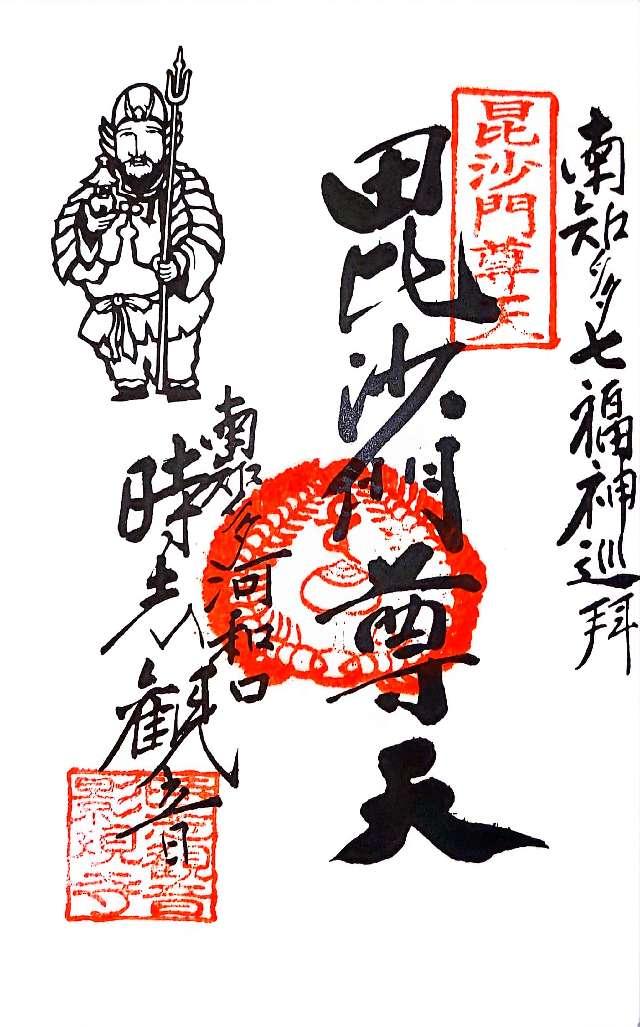 南知多七福神巡拝
毘沙門尊天
毘沙門尊天
南知多河和口
時志観音
時志観音
影現寺